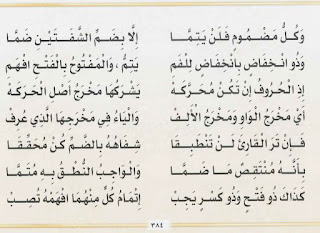 وَكُلُّ مَضْمُومٍ فَلَنْ يَتِمَّا إِلَّا بِضَمِّ الشَّفَتَيْنِ ضَمَّا
وَذُو انْخِفَاضٍ بِانْخِفَاضٍ لِلْفَمِ يَتِمُّ، وَالْمَفْتُوحُ بِالْفَتْحِ افْهَمِ
إِذِ الْحُرُوفُ إِنْ تَكُنْ مُحَرَّكَهْ يَشْرَكُهَا مَخْرَجُ أَصْلِ الْحَرَكَهْ
أَيْ مَخْرَجُ الْوَاوِ وَمَخْرَجُ الْأَلِفْ وَالْيَاءُ فِي مَخْرَجِهَا الَّذِي عُرِفْ
فَإِنْ تَرَ الْقَارِئَ لَنْ تَنْطَبِقَا شِفَاهُهُ بِالضَّمِّ كُنْ مُحَقِّقَا
بِأَنَّهُ مُنْتَقِصٌ مَا ضَمَّا وَالْوَاجِبُ النُّطْقُ بِهِ مُتَمَّا
كَذَاكَ ذُو فَتْحٍ وَذُو كَسْرٍ يَجِبْ إِتْمَامُ كُلٍّ مِنْهُمَا افْهَمْهُ تُصِبْ
٣٨٤